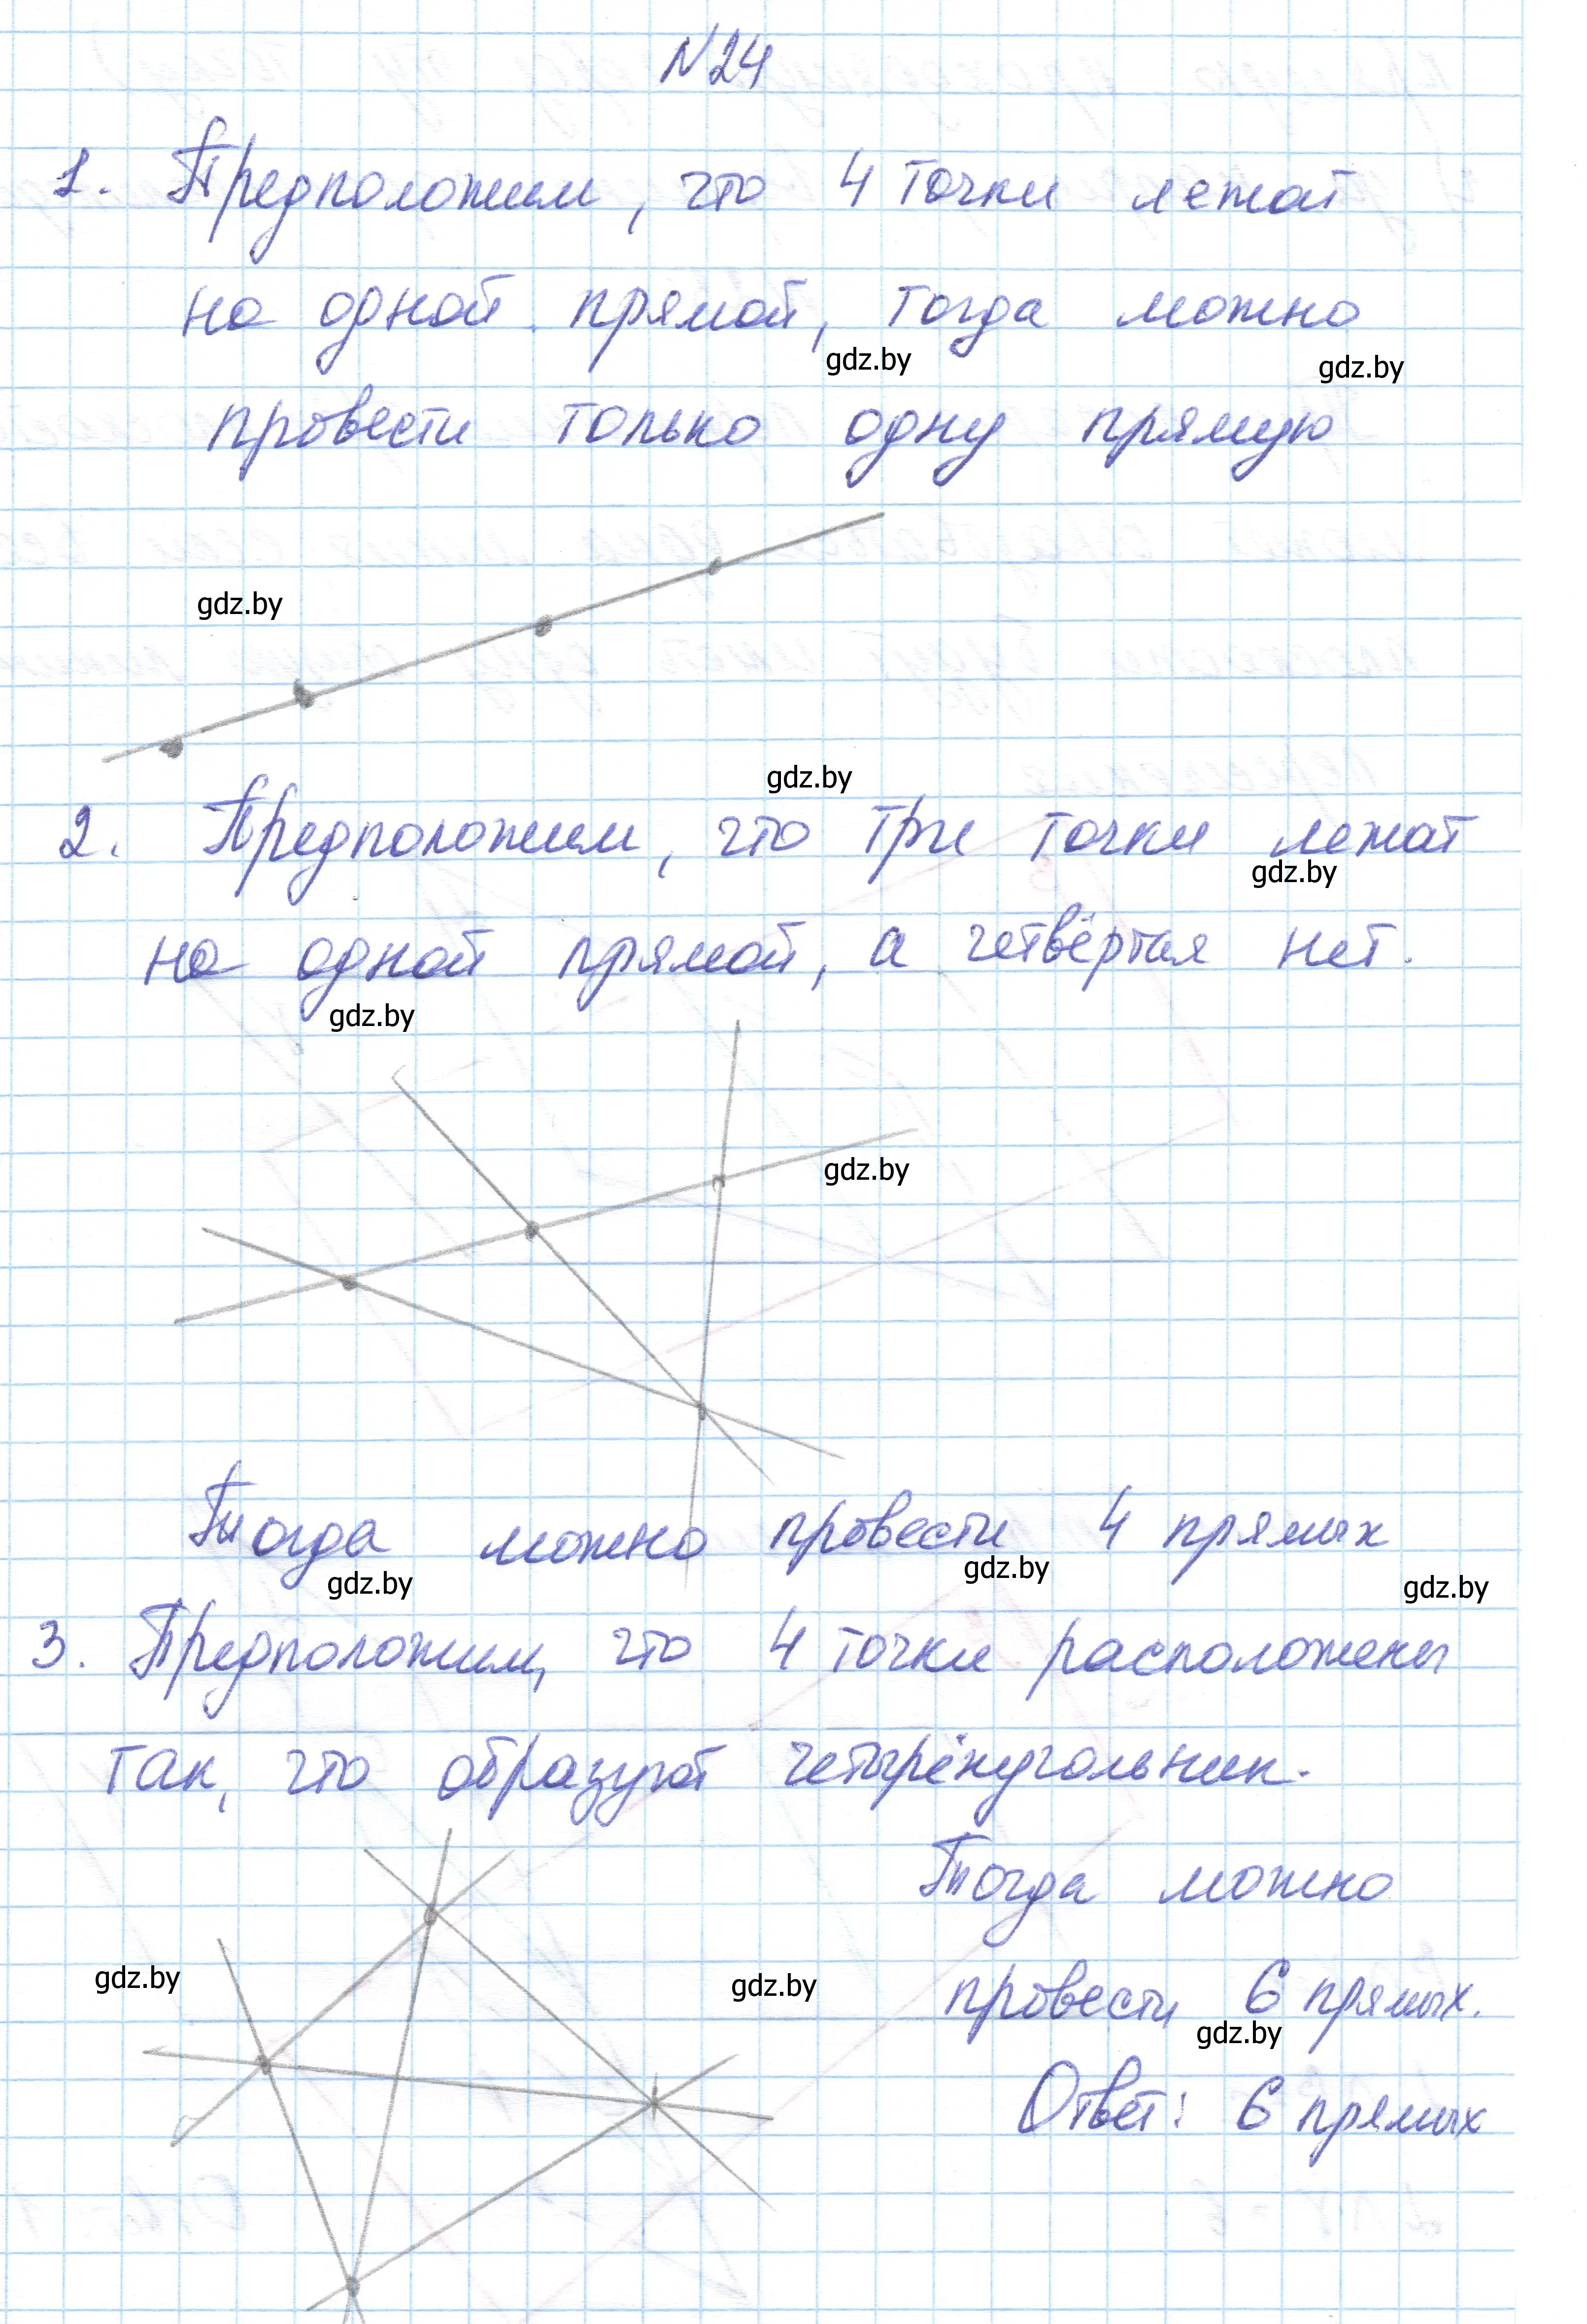 №24
1. Предположим, что 4 точки лежат
на одной прямой, тогда можно
gdz.by
gdz.by
провести только одну прямую
gdz.by
gdz.by
2. Предположим, что три точки лежат
gdz.by
на одной прямой, а четвёртая нет.
gdz.by
gdz.by
Тогда можно провести 4 прямых
gdz.by
gdz.by
gdz.by
3. Предположим, что 4 точки расположены
так, что образуют четырёхугольник.
Тогда можно
gdz.by
gdz.by
провести 6 прямых.
gdz.by
Ответ: 6 прямых